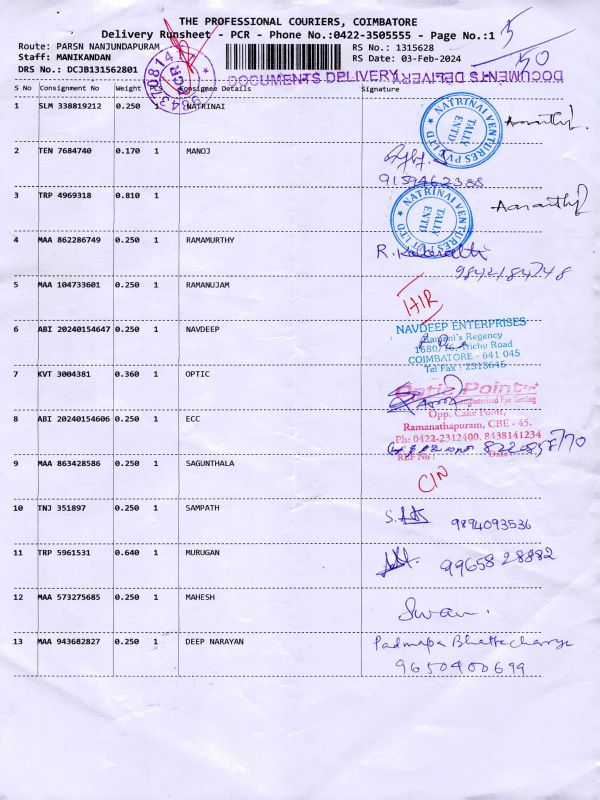 THE PROFESSIONAL COURIERS, COIMBATORE
Delivery Runsheet - PCR - Phone No.:0422-3505555 - Page No.:1
Route: PARSN NANJUNDAPURAM RS No.: 1315628
Staff: MANIKANDAN RS Date: 03-Feb-2024
DRS No.: DCJB131562801
DOCUMENTS DELIVERY DOCUMENTS DELIVERY
S No Consignment No Weight PCS Consignee Details Signature
1 SLM 338819212 0.250 1 NATRINAI
NATRINAI VENTURES PVT LTD
TALLY ENTD
2 TEN 7684740 0.170 1 MANOJ
9159462388
3 TRP 4969318 0.810 1
NATRINAI VENTURES PVT LTD
TALLY ENTD
4 MAA 862286749 0.250 1 RAMAMURTHY
9842184748
5 MAA 104733601 0.250 1 RAMANUJAM
6 ABI 20240154647 0.250 1 NAVDEEP
NAVDEEP ENTERPRISES
Ramani's Regency
1680/76, Trichy Road
COIMBATORE - 641 045
Tel Fax : 2313645
7 KVT 3004381 0.360 1 OPTIC
Optic Point
Computerized Eye Testing
Opp. Cake Point,
Ramanathapuram, CBE - 45.
Ph: 0422-2312400, 8438141234
REF No : Date :
8 ABI 20240154606 0.250 1 ECC
9 MAA 863428586 0.250 1 SAGUNTHALA
10 TNJ 351897 0.250 1 SAMPATH
9894093536
11 TRP 5961531 0.640 1 MURUGAN
9965828882
12 MAA 573275685 0.250 1 MAHESH
13 MAA 943682827 0.250 1 DEEP NARAYAN
9650400699